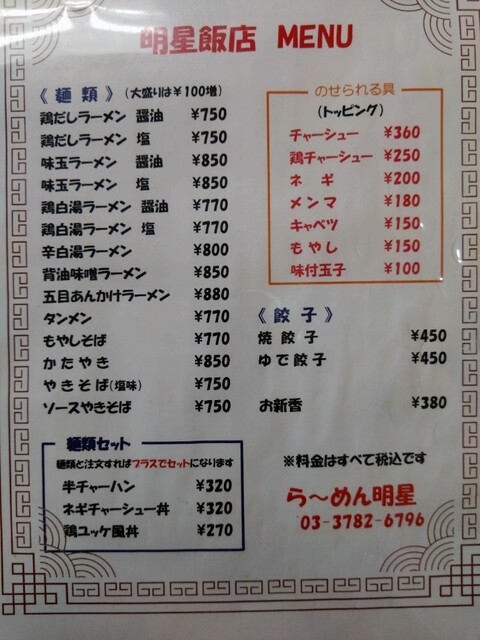 明星飯店 MENU
《 麺 類 》 (大盛りは￥100増)
鶏だしラーメン 醤油 ¥750
鶏だしラーメン 塩 ¥750
味玉ラーメン 醤油 ¥850
味玉ラーメン 塩 ¥850
鶏白湯ラーメン 醤油 ¥770
鶏白湯ラーメン 塩 ¥770
辛白湯ラーメン ¥800
背油味噌ラーメン ¥850
五目あんかけラーメン ¥880
タンメン ¥770
もやしそば ¥770
かたやき ¥850
やきそば(塩味) ¥750
ソースやきそば ¥750
麺類セット
麺類と注文すればプラスでセットになります
半チャーハン ¥320
ネギチャーシュー丼 ¥320
鶏ユッケ風丼 ¥270
のせられる具
(トッピング)
チャーシュー ¥360
鶏チャーシュー ¥250
ネ ギ ¥200
メンマ ¥180
キャベツ ¥150
もやし ¥150
味付玉子 ¥100
《 餃 子 》
焼 餃 子 ¥450
ゆで餃子 ¥450
お新香 ¥380
※料金はすべて税込です
ら～めん明星
03-3782-6796